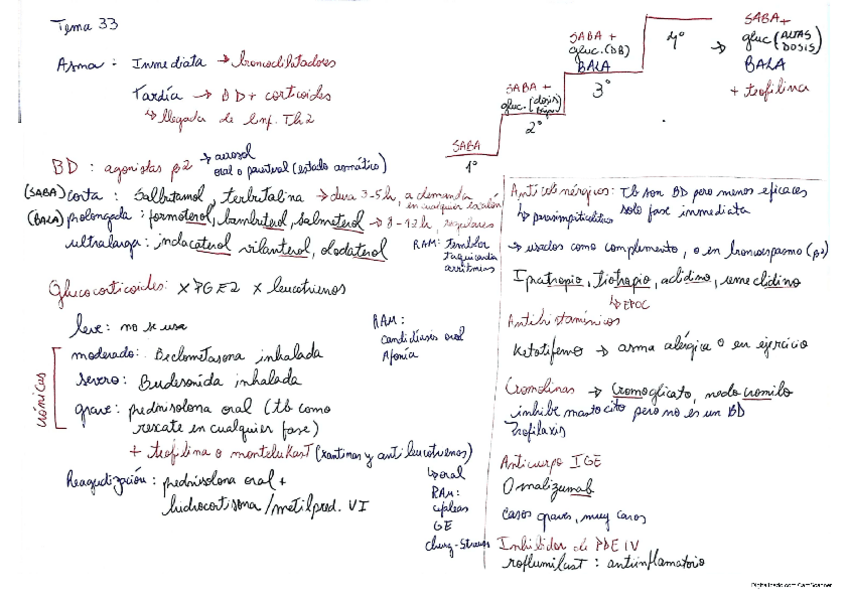 Tema 33
Asma: Inmediata → broncodilatadores
Tardía → BD + corticoides
↳ llegada de linf. Th2
SABA
1º
SABA +
gluc. (dosis bajas)
2º
SABA +
gluc. (DB)
BALA
3º
4º
→ SABA +
gluc (ALTAS DOSIS)
BALA
+ teofilina
BD: agonistas β2 → aerosol
oral o parenteral (estado asmático)
(SABA) corta: Salbutamol, terbutalina → dura 3-5h, a demanda
en cualquier escalón
(BALA) prolongada: formoterol, bambuterol, salmeterol → 8-12h, regulares
ultralarga: indacaterol vilanterol, olodaterol
RAM: temblor
taquicardia
arritmias
Glucocorticoides: x PGE2 x leucotrienos
leve: no se usa
RAM:
candidiasis oral
Afonía
crónicas
moderado: Beclometasona inhalada
severo: Budesonida inhalada
grave: prednisolona oral (tb como
rescate en cualquier fase)
+ teofilina o montelukast (xantinas y antileucotrienos)
↳ oral
RAM:
cefaleas
GE
Churg-Strauss
Reagudización: prednisolona oral +
hidrocortisona/metilpred. VI
Anticolinérgicos: Tb son BD pero menos eficaces
↳ parasimpaticolítico solo fase inmediata
→ usados como complemento, o en broncoespasmo (β2)
Ipratropio, tiotropio, aclidinio, umeclidinio
↳ EPOC
Antihistamínicos
Ketotifeno → asma alérgica o en ejercicio
Cromolinas → Cromoglicato, nedocromilo
inhibe mastocito pero no es un BD
Profilaxis
Anticuerpo IGE
Omalizumab
casos graves, muy caros
Inhibidor de PDE IV
roflumilast: antiinflamatorio
Digitalizado con CamScanner